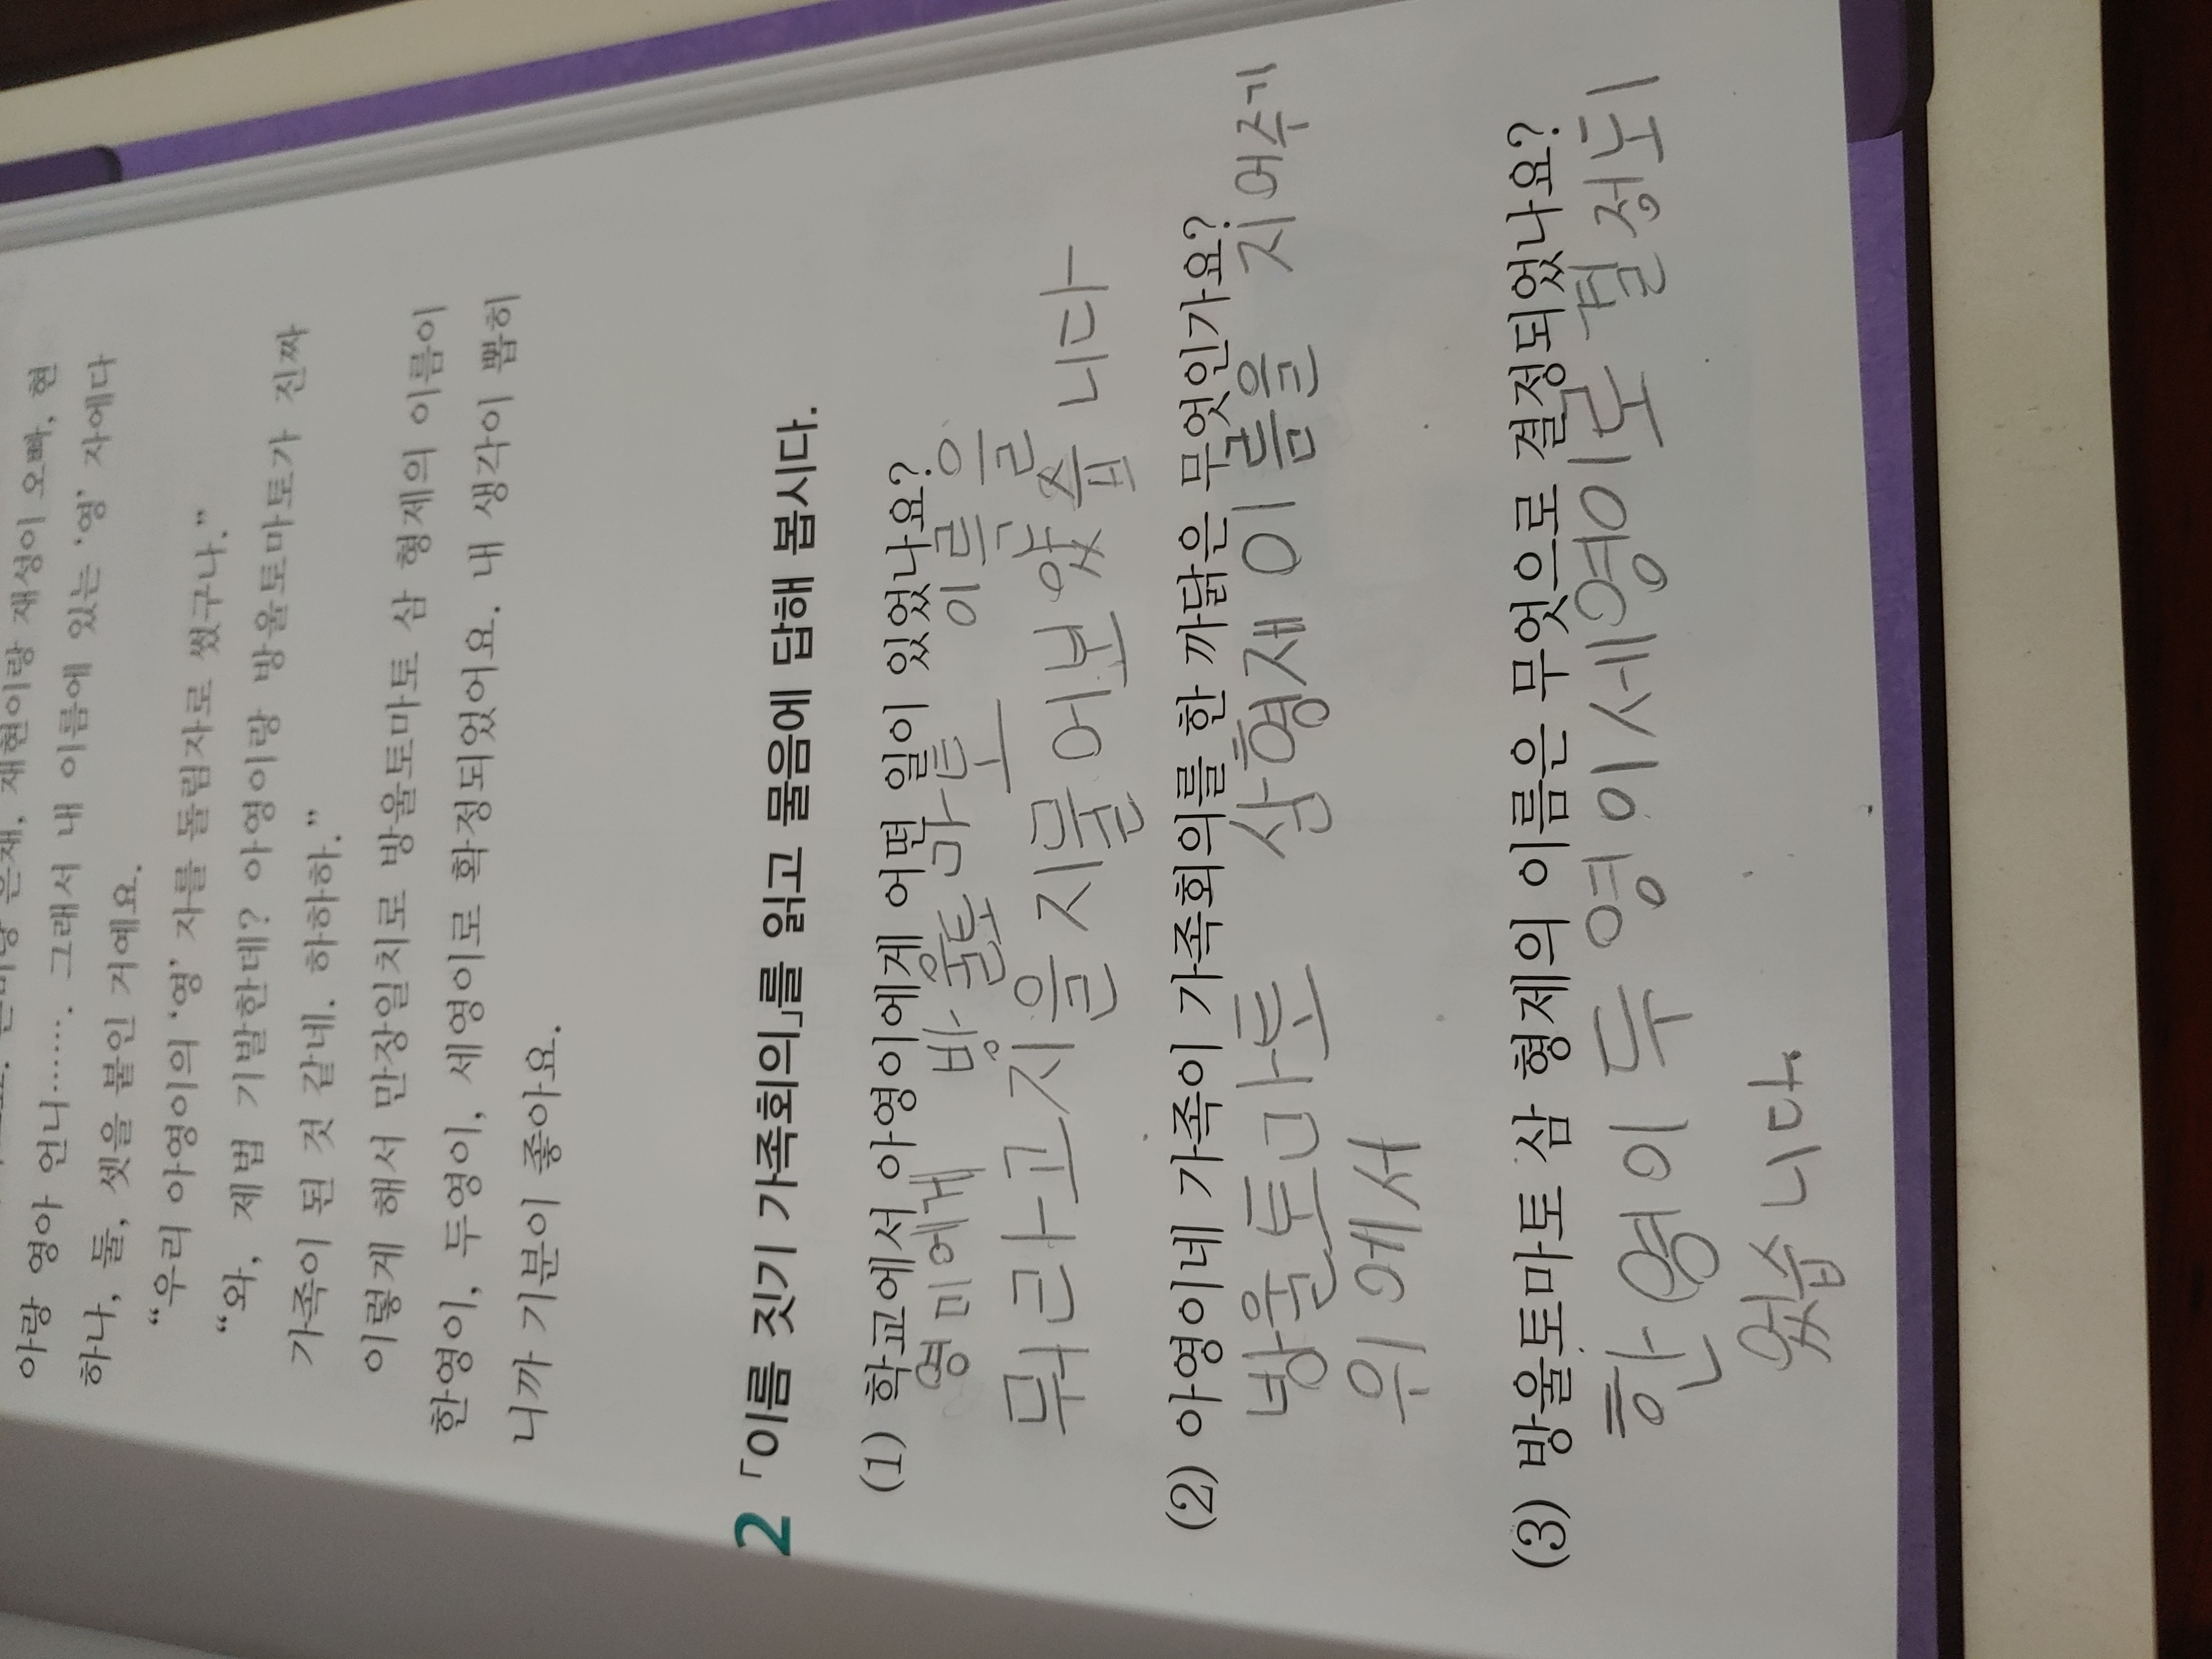 은재, 재현이랑 재성이 오빠, 현
아랑 영아 언니……. 그래서 내 이름에 있는 ‘영’ 자에다
하나, 둘, 셋을 붙인 거예요.
“우리 아영이의 ‘영’ 자를 돌림자로 썼구나.”
“와, 제법 기발한데? 아영이랑 방울토마토가 진짜
가족이 된 것 같네. 하하하.”
이렇게 해서 만장일치로 방울토마토 삼 형제의 이름이
한영이, 두영이, 세영이로 확정되었어요. 내 생각이 뽑히
니까 기분이 좋아요.
2 「이름 짓기 가족회의」를 읽고 물음에 답해 봅시다.
(1) 학교에서 아영이에게 어떤 일이 있었나요?
영미에게 방울토마토 이륵을
뭐라고지을지물어보았습니다
(2) 아영이네 가족이 가족회의를 한 까닭은 무엇인가요?
방울토마토 삼형재이름을 지어주기
위에서
(3) 방울토마토 삼 형제의 이름은 무엇으로 결정되었나요?
한영이두영이세영이로결정되
었습니다.